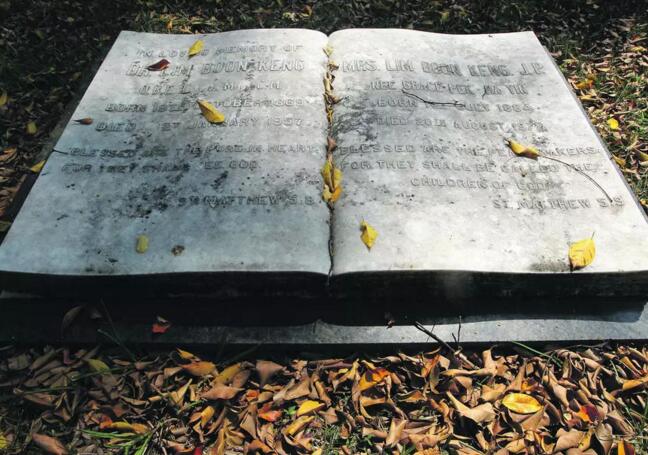 IN LOVING MEMORY OF
DR. LIM BOON KENG
O.B.E.
BORN OCTOBER 1869.
DIED 1ST JANUARY 1957.
"BLESSED ARE THE PURE IN HEART,
FOR THEY SHALL SEE GOD.
ST. MATTHEW 5.8.
MRS. LIM BOON KENG, J.P.
NEE GRACE PEK HA YIN
BORN JULY 1884.
DIED 20TH AUGUST
BLESSED ARE THE PEACEMAKERS:
FOR THEY SHALL BE CALLED THE
CHILDREN OF GOD."
ST. MATTHEW 5.